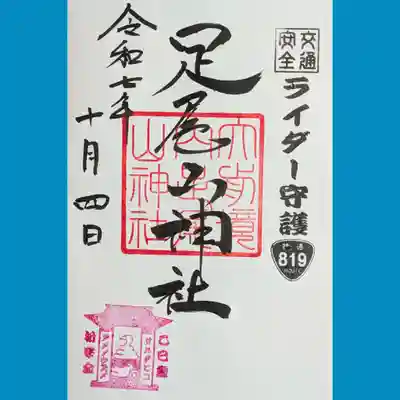 交通
安全
ライダー守護
819
足尾山神社
山神社
令和七年
十月四日
乙巳歳